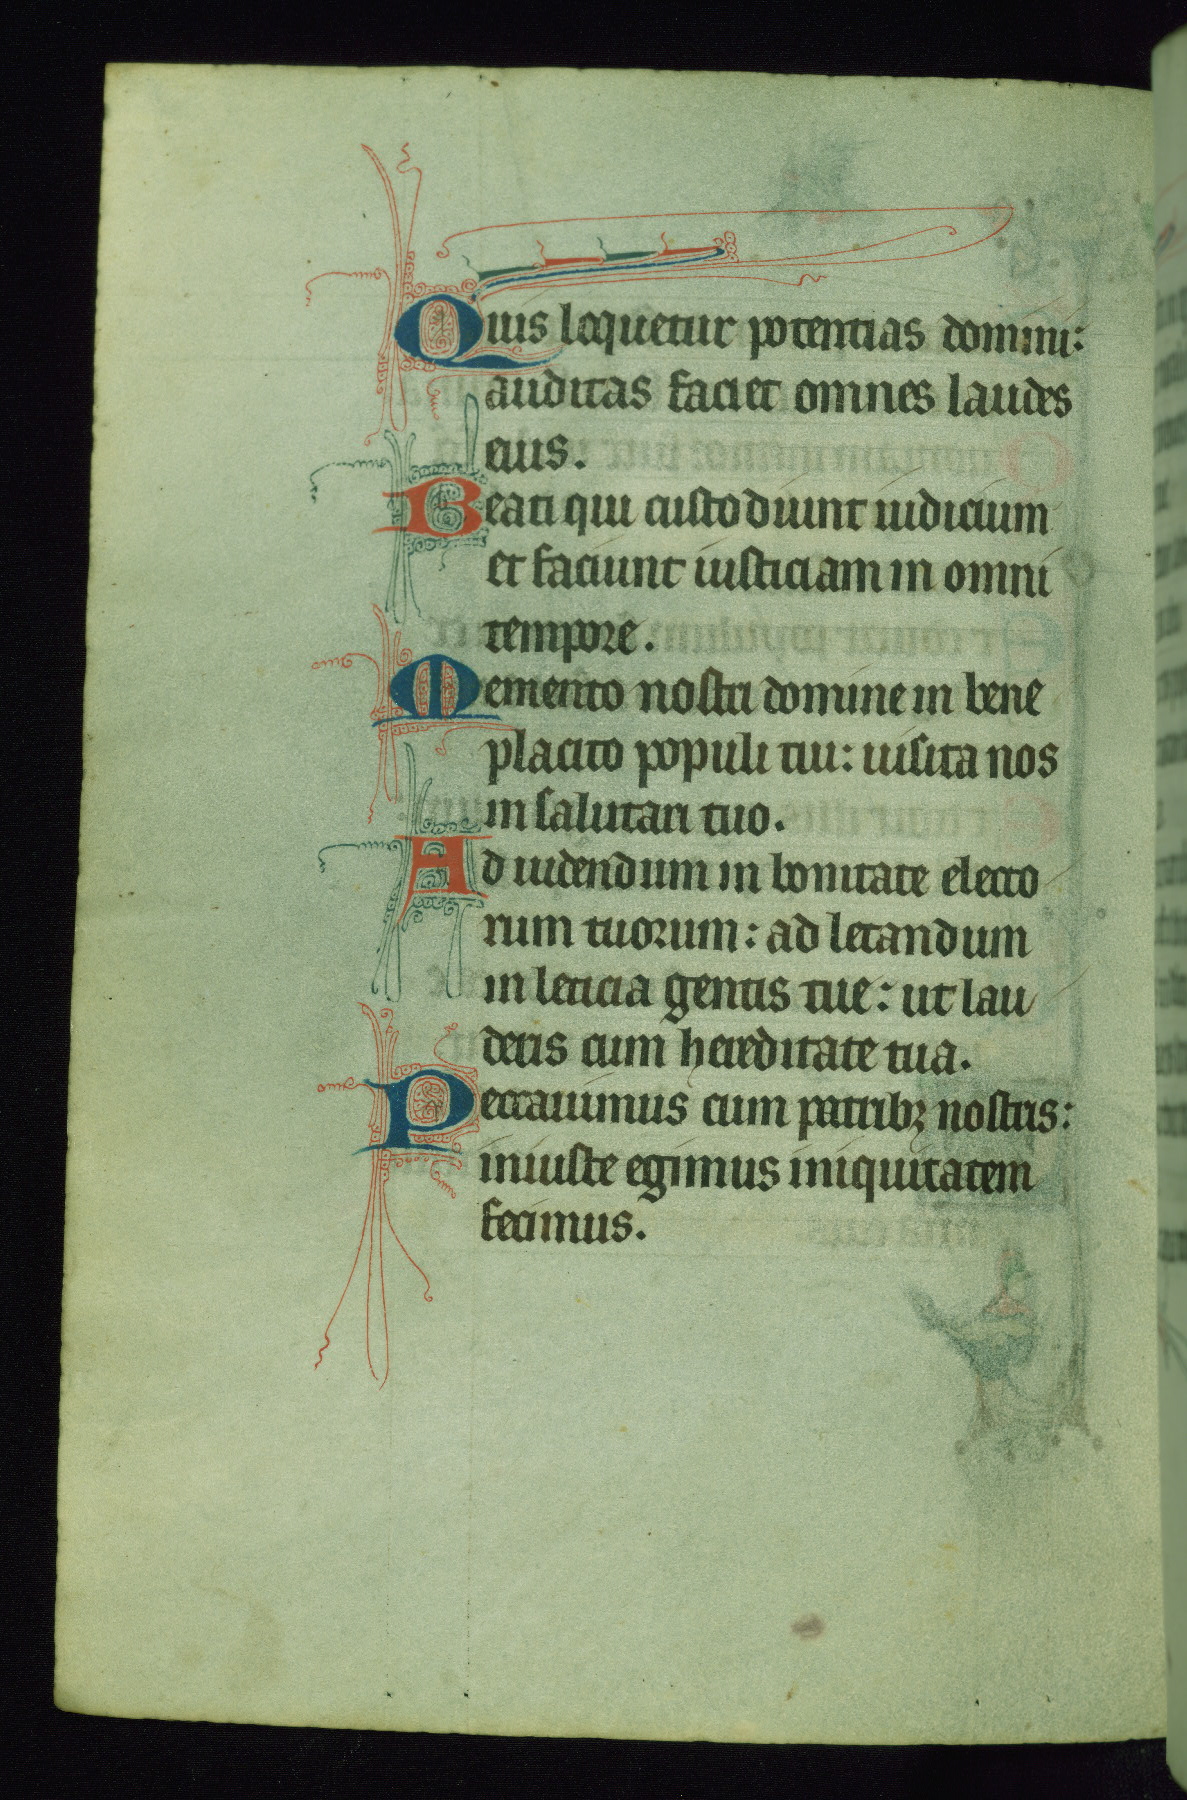 Quis loquetur potentias domini:
auditas faciet omnes laudes
eius.
Beati qui custodiunt iudicium
et faciunt iusticiam in omni
tempore.
Memento nostri domine in bene
placito populi tui: uisita nos
in salutari tuo.
Ad uidendum in bonitate electo
rum tuorum: ad letandum
in leticia gentis tue: ut lau
deris cum hereditate tua.
Peccauimus cum patribꝫ nostris:
iniuste egimus iniquitatem
fecimus.